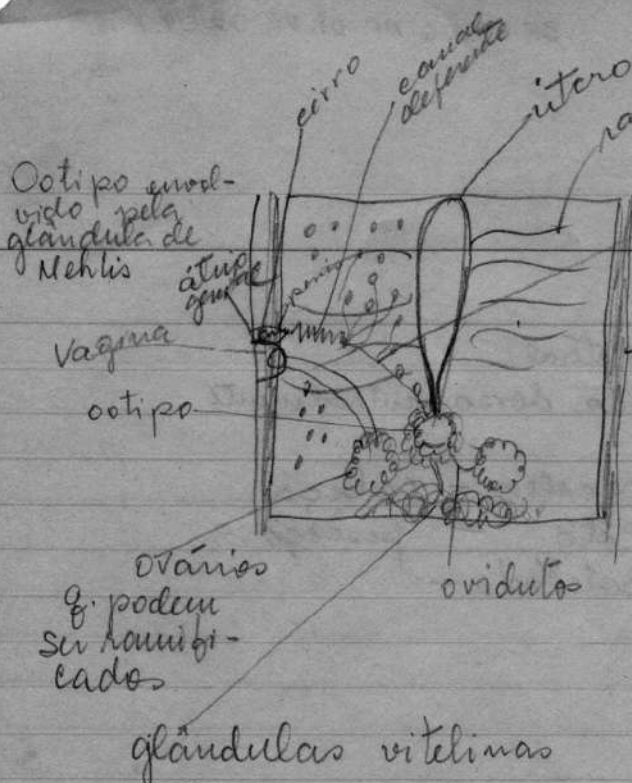 cirro
canal
deferente
útero
ra
Ootipo envol-
vido pela
glândula de
Mehlis
átrio
genital
penis
Vagina
ootipo
ovários
q. podem
ser ramifi-
cados
ovidutos
glândulas vitelinas